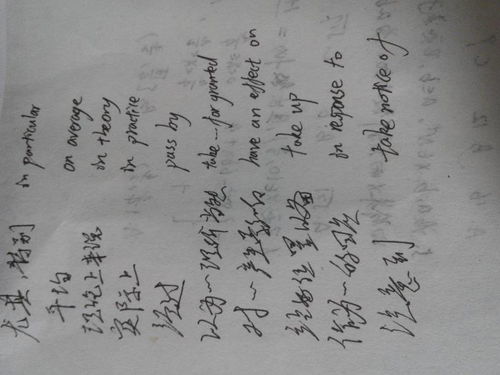 尤其，特别 in particular
平均 on average
理论上来说 in theory
实际上 in practice
经过 pass by
以为…理所当然 take…for granted
对…产生影响 have an effect on
take up
作为…的回应 in response to
注意到 take notice of